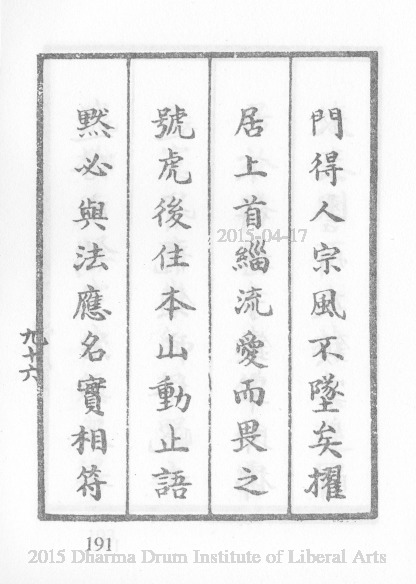 門得人宗風不墜矣擢
居上首緇流愛而畏之
號虎後住本山動止語
默必與法應名實相符
九十六
191
2015-04-17
2015 Dharma Drum Institute of Liberal Arts